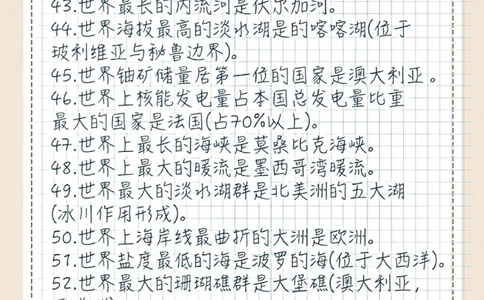 43.世界最长的内流河是伏尔加河。
44.世界海拔最高的淡水湖是的的喀喀湖(位于
玻利维亚与秘鲁边界)。
45.世界铀矿储量居第一位的国家是澳大利亚。
46.世界上核能发电量占本国总发电量比重
最大的国家是法国(占70%以上)。
47.世界上最长的海峡是莫桑比克海峡。
48.世界上最大的暖流是墨西哥湾暖流。
49.世界最大的淡水湖群是北美洲的五大湖
(冰川作用形成)。
50.世界上海岸线最曲折的大洲是欧洲。
51.世界盐度最低的海是波罗的海(位于大西洋)。
52.世界最大的珊瑚礁群是大堡礁(澳大利亚,